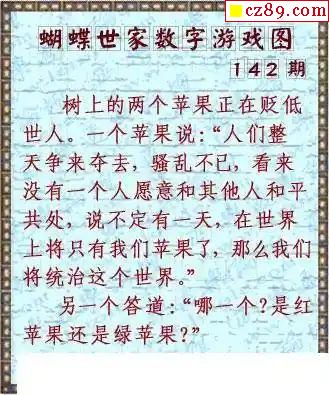 cz89.com
蝴蝶世家数字游戏图
142期
树上的两个苹果正在贬低
世人。一个苹果说:“人们整
天争来夺去,骚乱不已,看来
没有一个人愿意和其他人和平
共处,说不定有一天,在世界
上将只有我们苹果了,那么我们
将统治这个世界。”
另一个答道:“哪一个?是红
苹果还是绿苹果?”